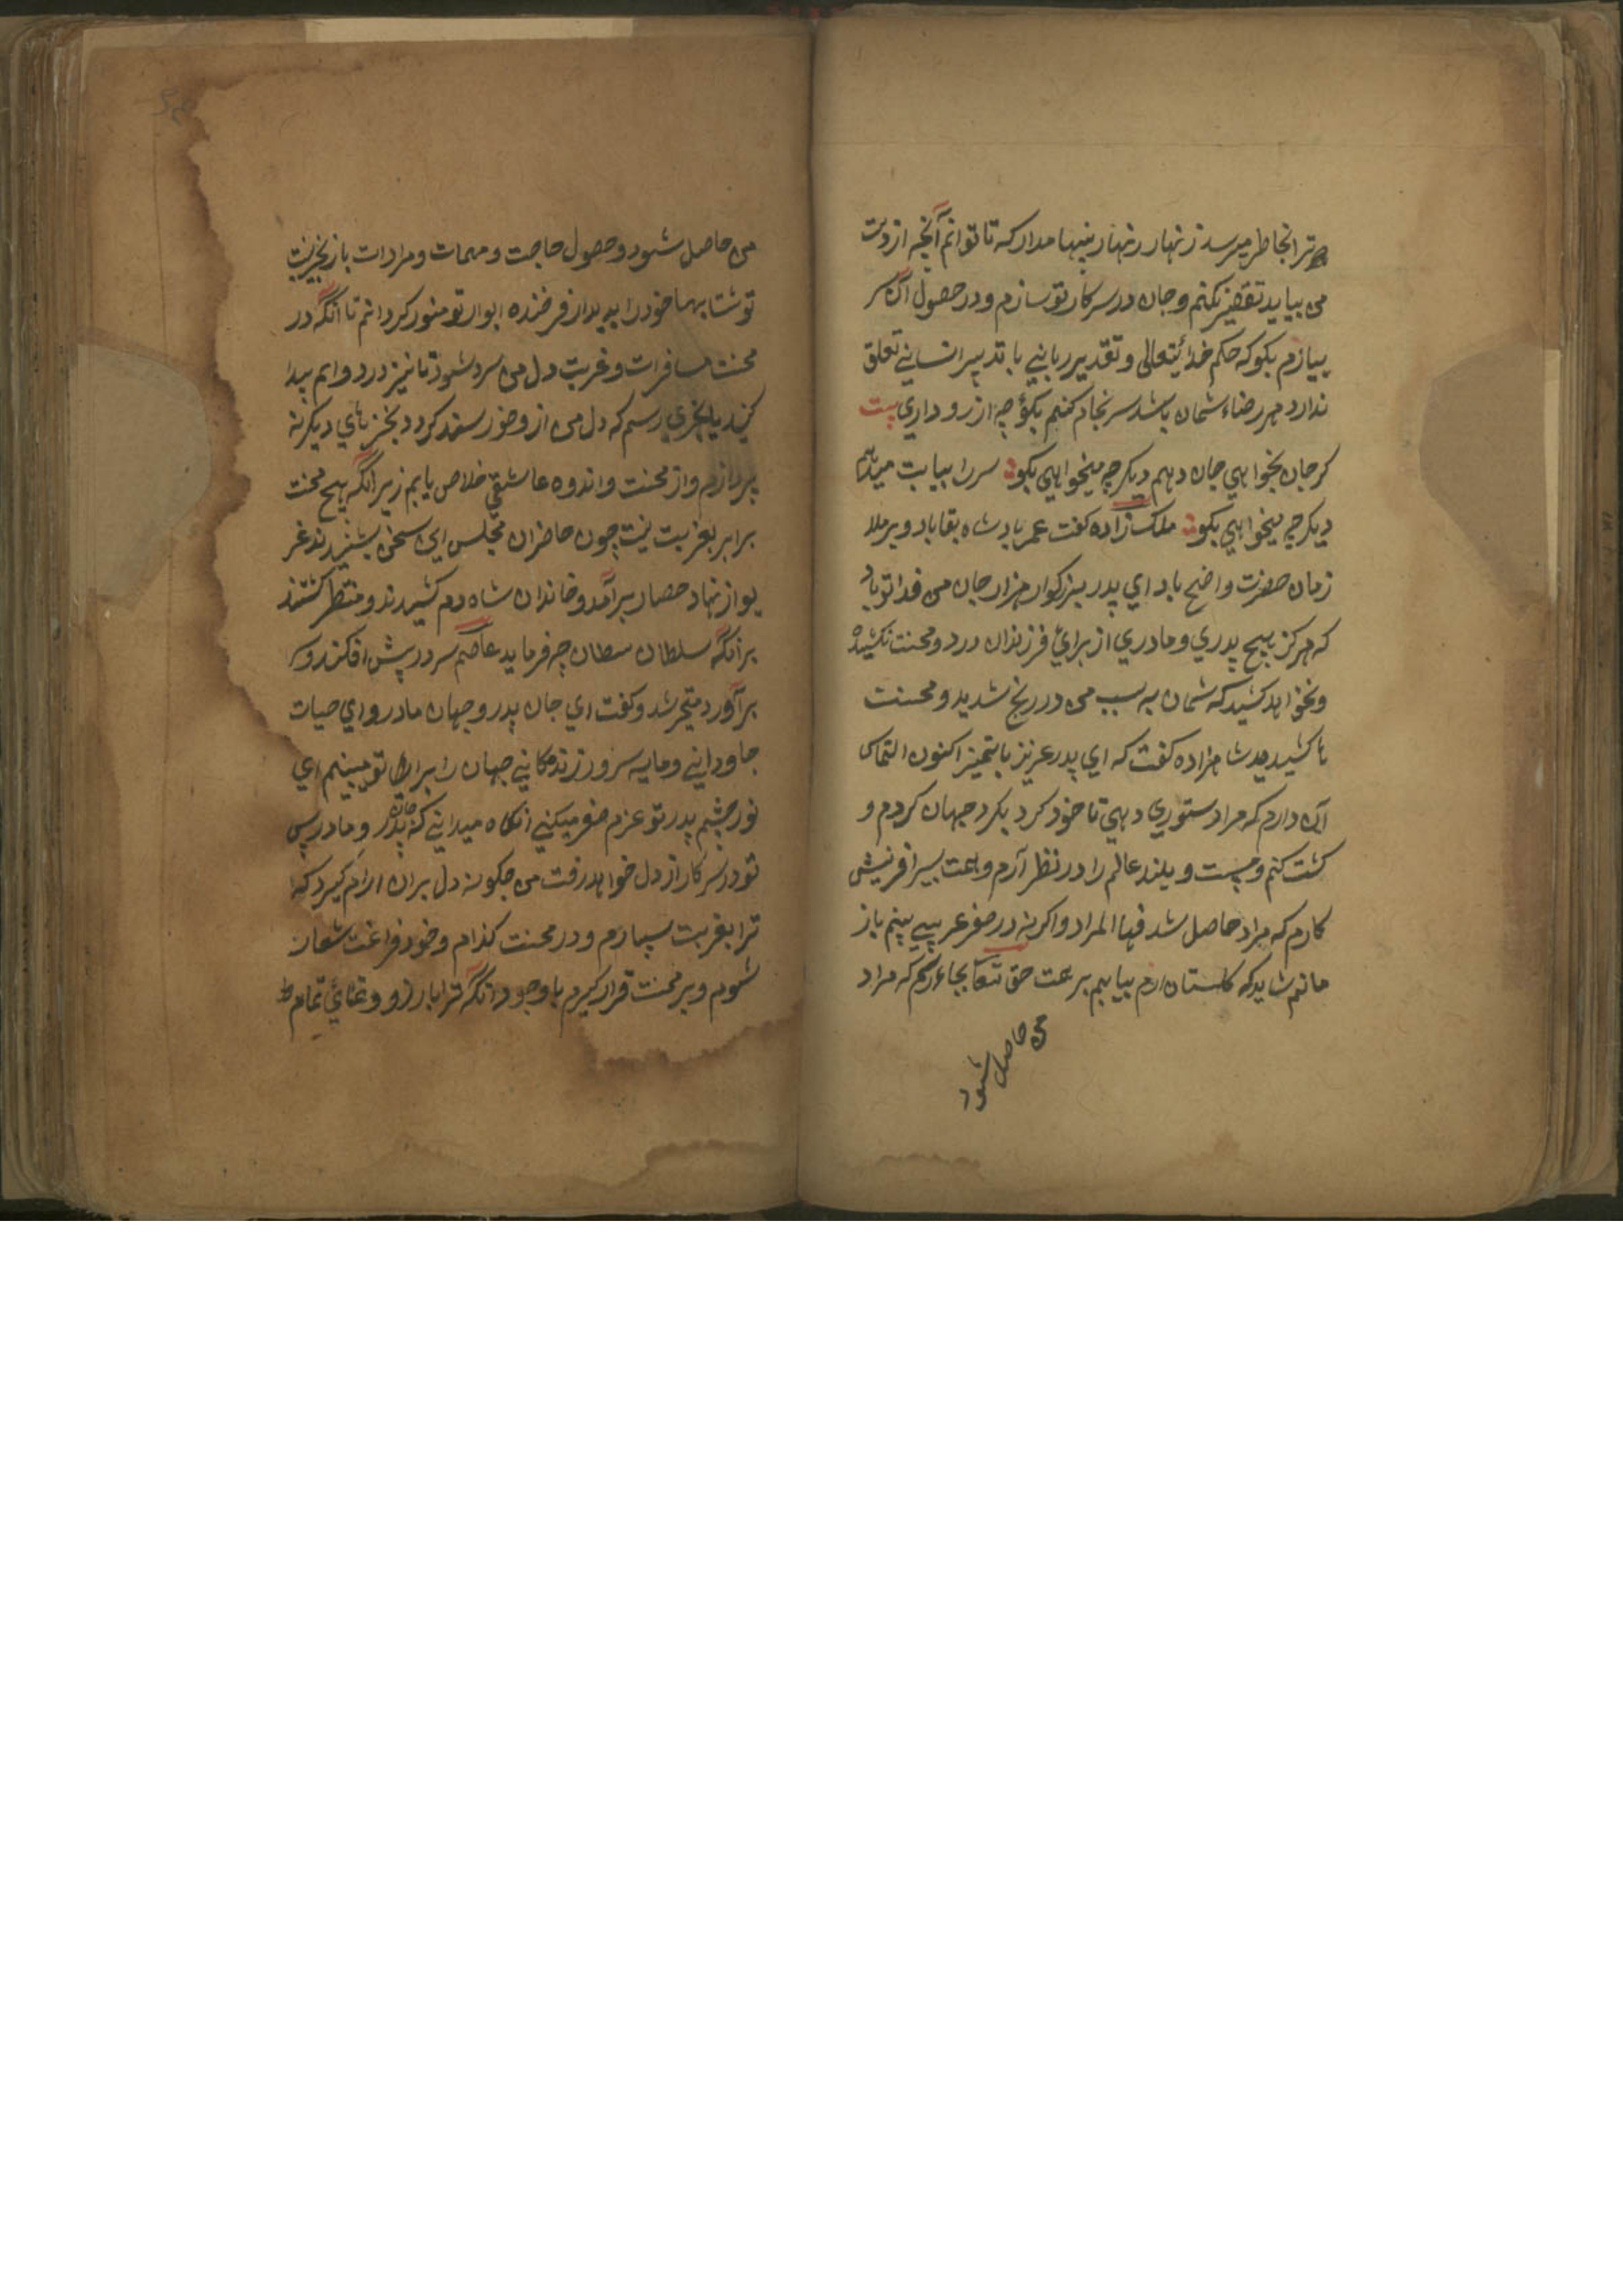 ترا بخاطر میرسد زنهار زنهار پنهان مدار که تا توانم آنچه از دست
من بیاید تقصیر نکنم و جان در سر کار تو سازم و در حصول آن سر
ببازم بکو که حکم خدائیتعالی و تقدیر ربانی با تدبیر انسانی تعلق
ندارد هر رضاء شمان باشد سرنجام کنم بکو چه ارزو داری بیت
کر جان بخواهی جان دهم دیکر چه میخواهی بکو سر را بیایت میدهم
دیکر چه میخواهی بکو ملک زاده کفت عمر بادشاه بقا باد و بر ملا
زمان حضرت واضح باد ای پدر بزرکوار هزار جان من فدا تو باد
که هرکز هیچ پدری و مادری از برائ فرزندان درد و محنت نکشیده
و نخواهد کشید که شمان به سبب من در رنج شدید و محنت
ها کشیدید شاهزاده کفت که ای پدر عزیز با تمیز اکنون التماس
آن دارم که مرا دستوری دهی تا خود کرد بکرد جهان کردم و
کشت کنم و پست و بلند عالم را در نظر آرم و همت بسیر افرینش
کارم که مراد حاصل شد فبها المراد و اکر نه در سفر غریبی بینم باز
مانم شاید که کلستان ارم بیابیم بر همت حق تعا بجا اورم که مراد
من حاصل شود
من حاصل شود و حصول حاجت و مهمات و مرادات باز بخیریت
تو شتابم خود را به دیدار فرخنده انوار تو منور کردانم تا انکه در
محنت مسافرات و غربت دل من سرد شود تا نیز درد و الم پیدا
کنید یا بچیزی رسم که دل من از و خورسند کردد بچیزهای دیکر نه
پردازم و از محنت و اندوه عاشقی خلاص یابم زیرانکه هیچ محنت
برابر بغربت نیست چون حاضران مجلس این سخن بشنیدند غر
یو از نهاد حصار برآمد و خاندان شاه دم کشیدند و منتظر کشتند
برانکه سلطان چه فرماید عاصم سر در پیش افکند و
برآورد متحیر شد و کفت ای جان پدر و جهان مادر و ای حیات
جاودانی و مایه سرور زندکانی جهان را برای تو میبینم ای
نور چشم پدر تو عزم سفر میکنی انکاه میدانی که جان پدر و مادر پس
تو در سر کار از دل خواهد رفت من چکونه دل بران ارام کیرد که
ترا بغربت سپارم و در محنت کذارم و خود فراغت شعار
شوم و بر محنت قرار کیرم باوجود انکه ترا بارزو و تمنائ تمام